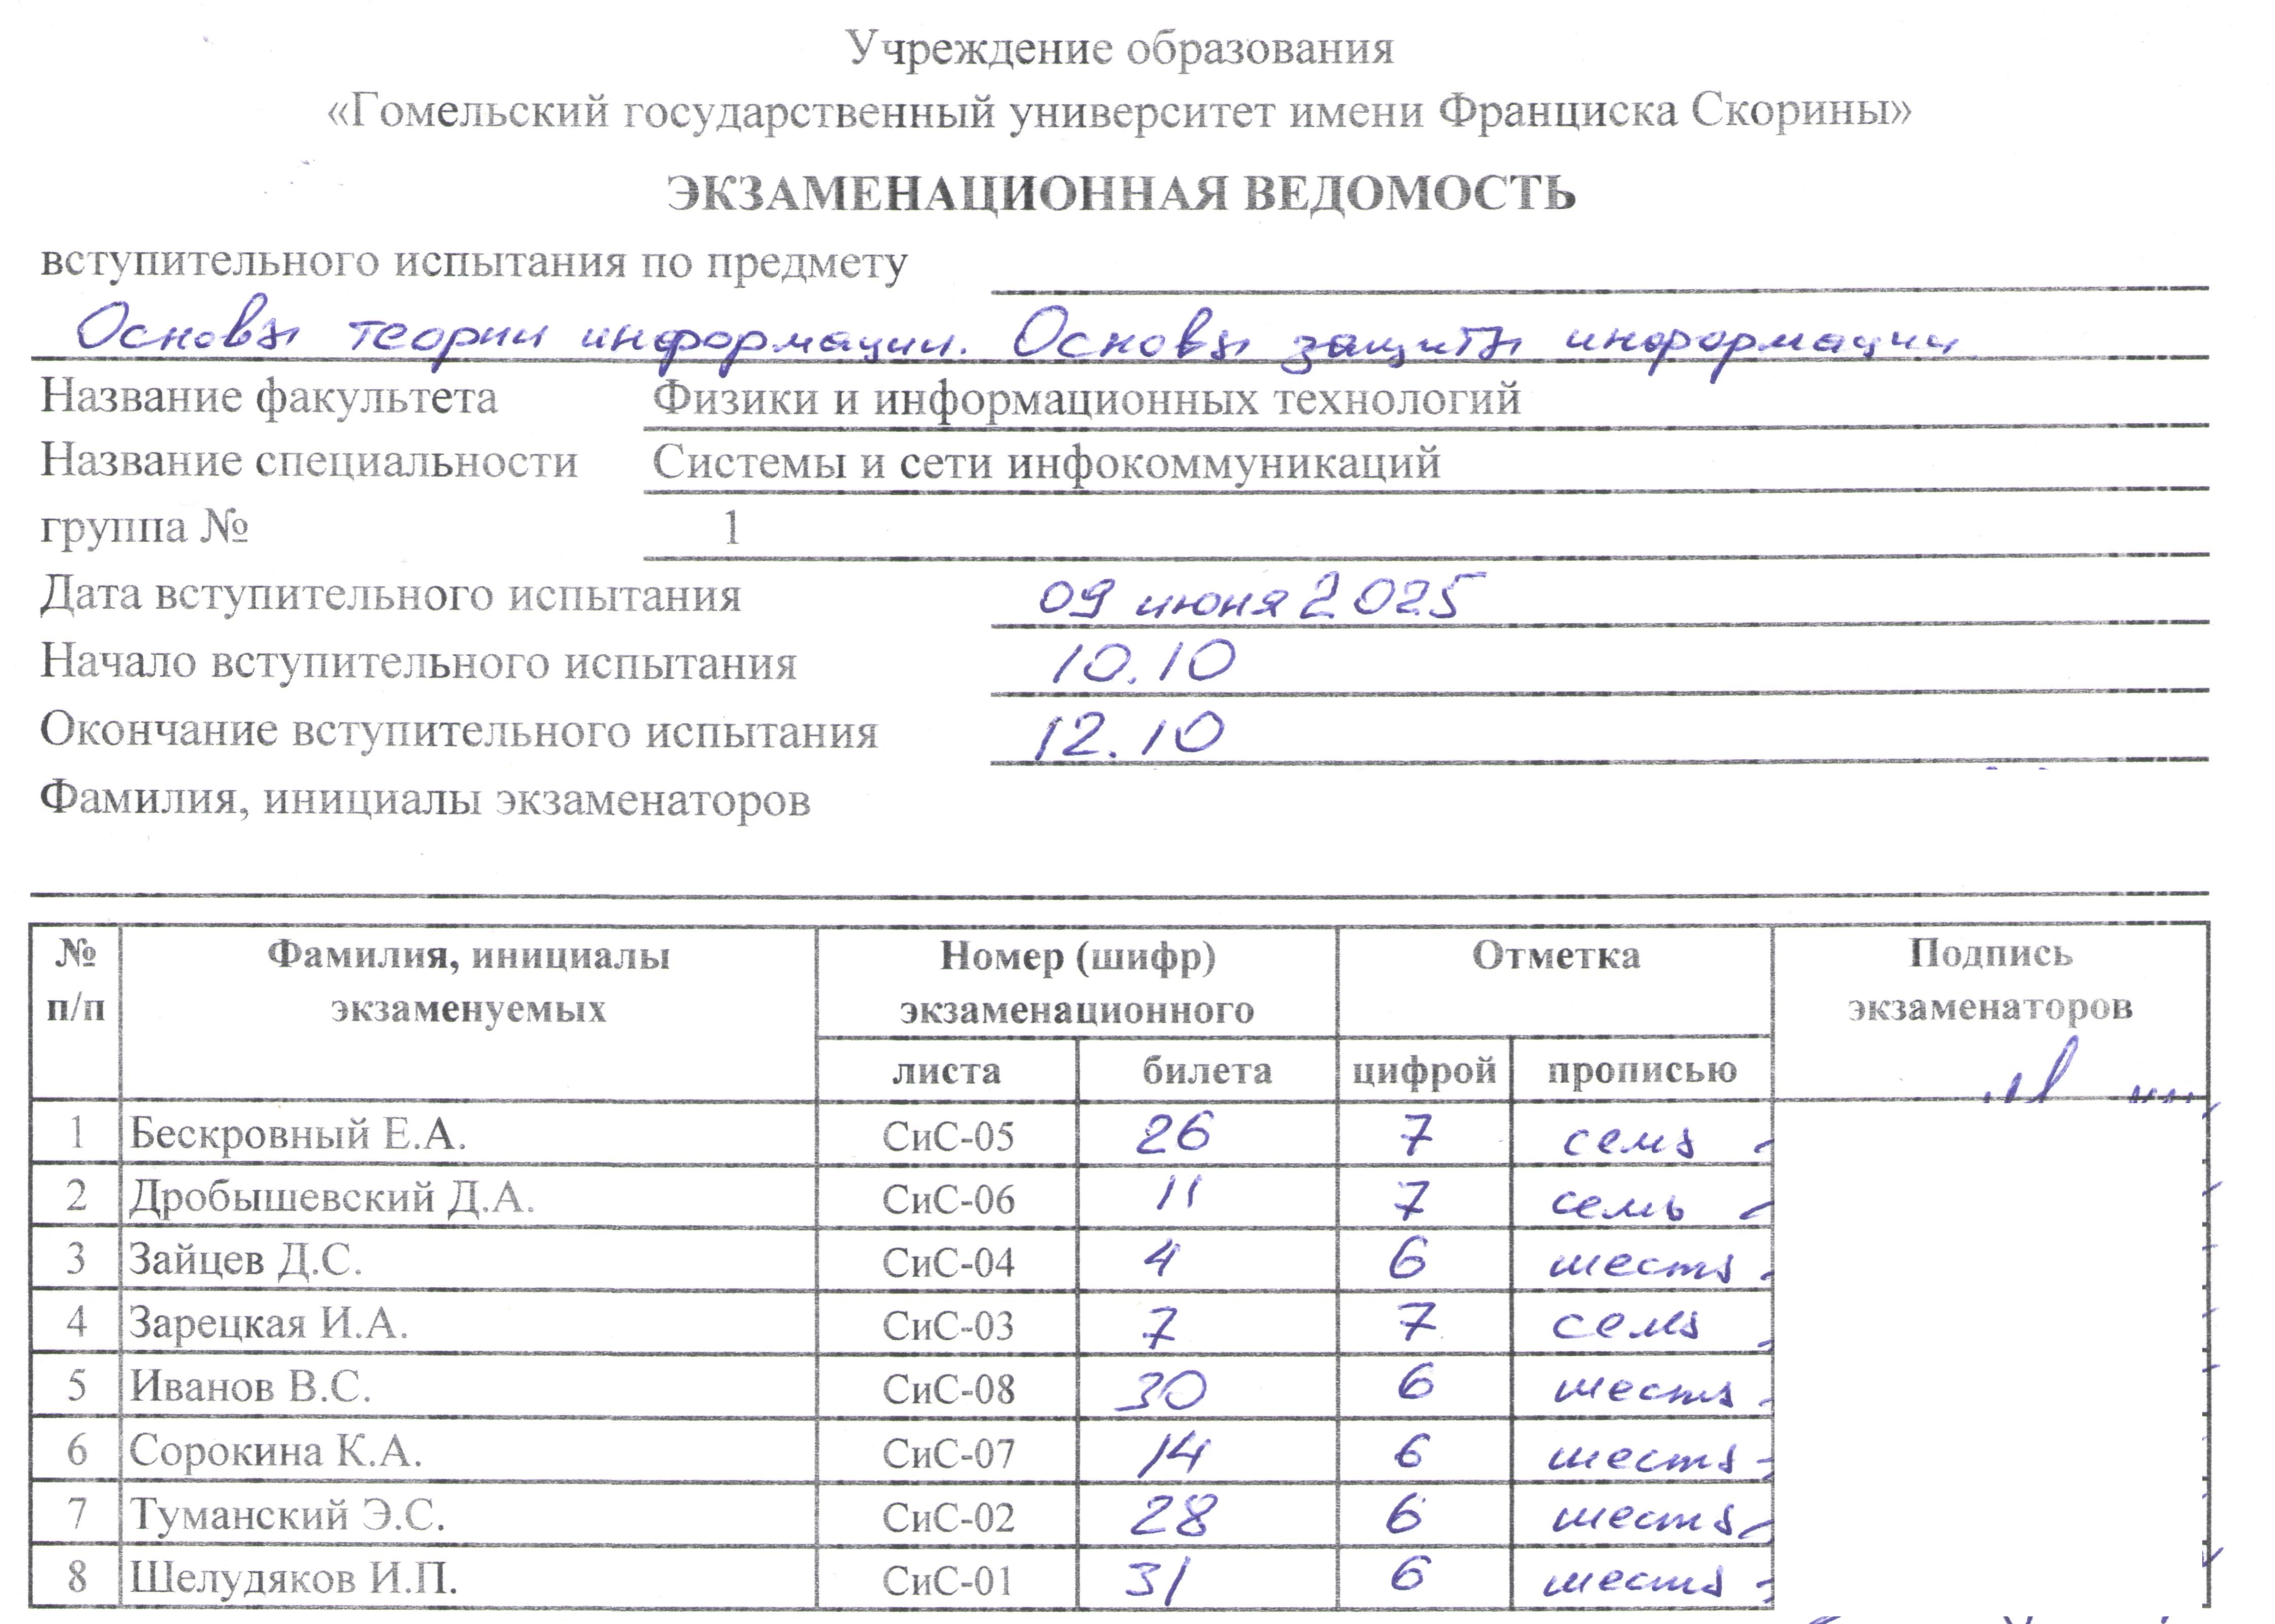 Учреждение образования
«Гомельский государственный университет имени Франциска Скорины»
ЭКЗАМЕНАЦИОННАЯ ВЕДОМОСТЬ
вступительного испытания по предмету
Основы теории информации. Основы защиты информации
Название факультета Физики и информационных технологий
Название специальности Системы и сети инфокоммуникаций
группа № 1
Дата вступительного испытания 09 июня 2025
Начало вступительного испытания 10.10
Окончание вступительного испытания 12.10
Фамилия, инициалы экзаменаторов
№ п/п Фамилия, инициалы экзаменуемых Номер (шифр) экзаменационного Отметка Подпись экзаменаторов
листа билета цифрой прописью
1 Бескровный Е.А. СиС-05 26 7 семь
2 Дробышевский Д.А. СиС-06 11 7 семь
3 Зайцев Д.С. СиС-04 4 6 шесть
4 Зарецкая И.А. СиС-03 7 7 семь
5 Иванов В.С. СиС-08 30 6 шесть
6 Сорокина К.А. СиС-07 14 6 шесть
7 Туманский Э.С. СиС-02 28 6 шесть
8 Шелудяков И.П. СиС-01 31 6 шесть